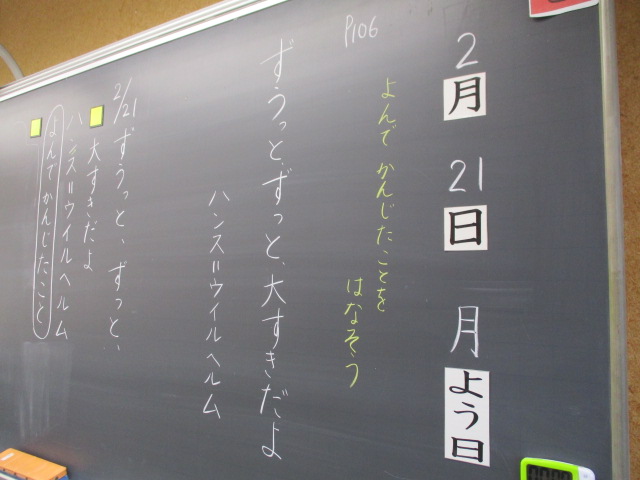 2月21日月よう日
P106
よんでかんじたことを
はなそう
ずうっと、ずっと、大すきだよ
ハンス=ウイルヘルム
2/21ずうっと、ずっと、
大すきだよ
ハンス=ウイルヘルム
よんでかんじたこと